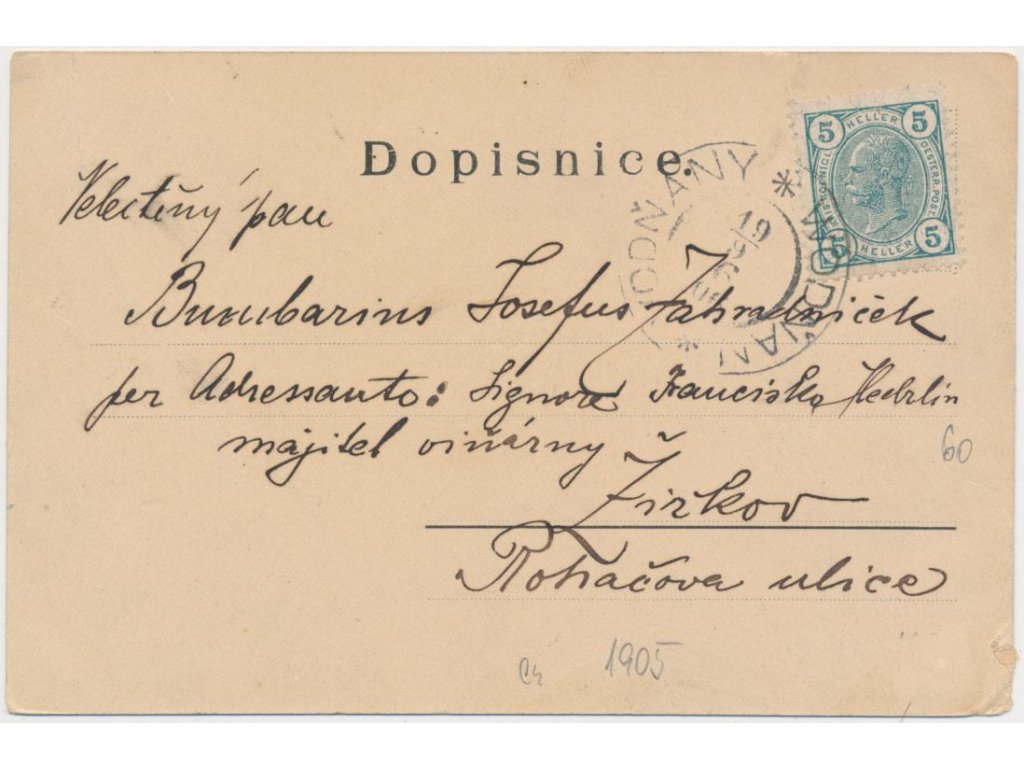 Dopisnice.
5 HELLER 5
KAIS. KOENIGL. OESTERR. POST.
5 HELLER 5
VODŇANY * WODŇAN *
19
9
Velectěný pan
Bumbarius Josefus Zahradníček
per Adressanto: Signore Francisko Hedrlin
májitel vinárny
60
Žižkov
Rohačova ulice
1905